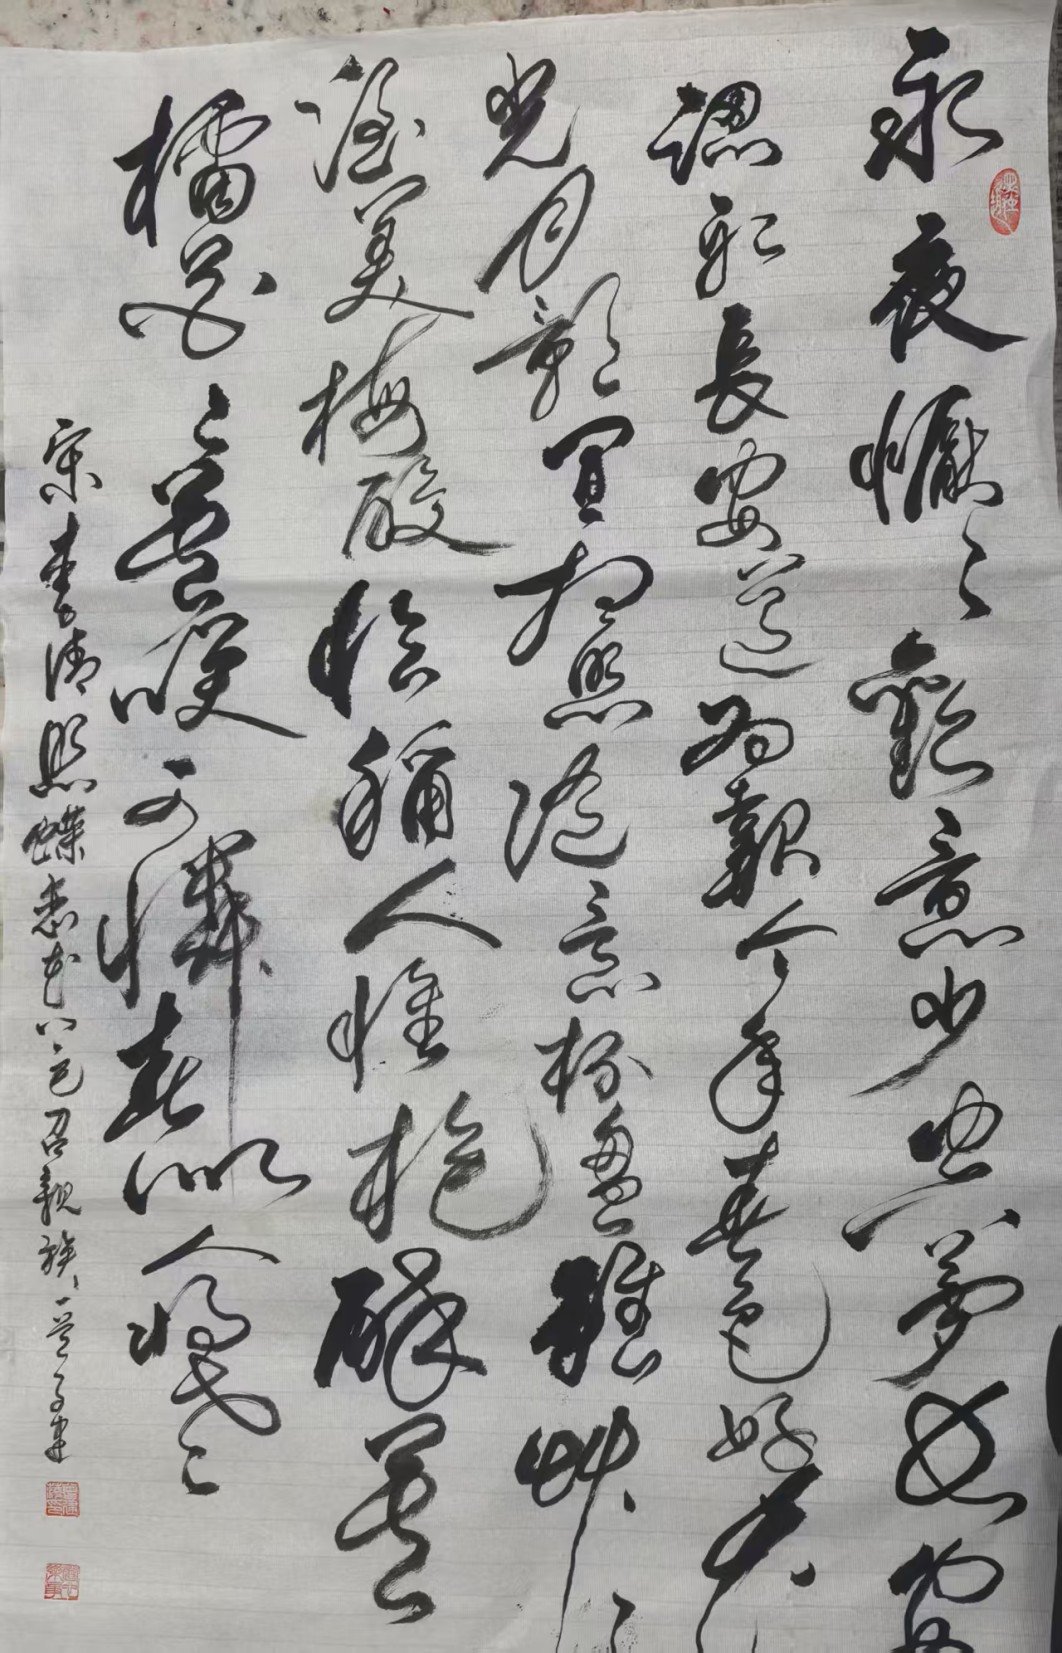 永夜懨〻歡意少空夢長安
認取長安道為報今年春色好花
光月影宜相照隨意杯盤雖草〻
酒美梅酸恰稱人懷抱醉莫
插花〻莫笑可憐春似人將老
宋李清照蝶恋花上巳召親族